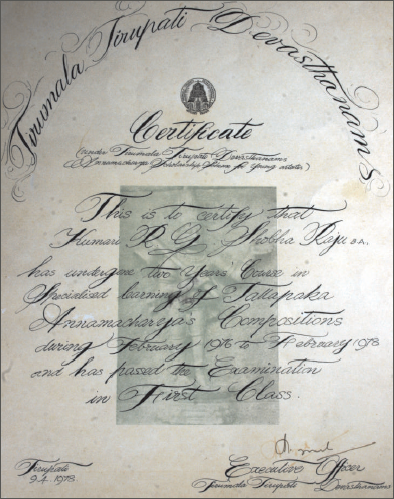 Tirumala Tirupati Devasthanams
Certificate
(under Tirumala Tirupati Devasthanams
Annamacharya Scholarship Scheme for Young artistes)
This is to certify that
Kumari R. G. Shobha Raju B.A.
has undergone two Years' Course in
Specialised learning of Tallapaka
Annamacharya's Compositions
during February 1976 to February 1978
and has passed the Examination
in First Class.
Tirupati
9.4.1978.
Executive Officer
Tirumala Tirupati Devasthanams